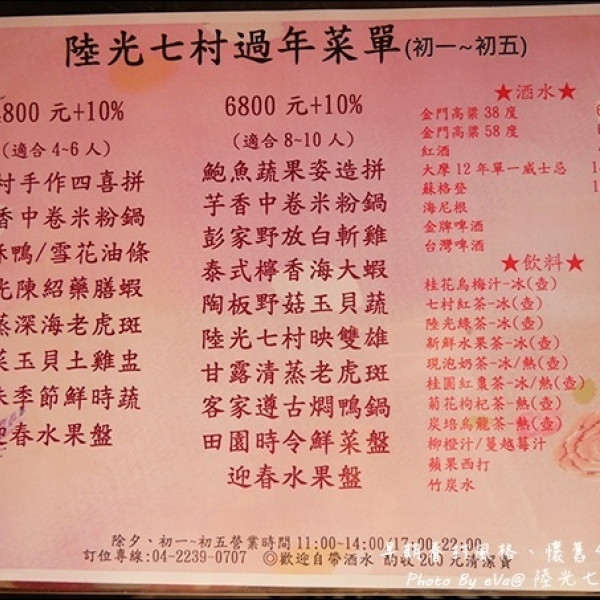 陸光七村過年菜單(初一~初五)
800 元+10%
(適合 4~6 人)
村手作四喜拼
香中卷米粉鍋
鴨/雪花油條
光陳紹藥膳蝦
蒸深海老虎斑
菜玉貝土雞盅
季節鮮時蔬
迎春水果盤
6800 元+10%
(適合 8~10 人)
鮑魚蔬果姿造拼
芋香中卷米粉鍋
彭家野放白斬雞
泰式檸香海大蝦
陶板野菇玉貝蔬
陸光七村映雙雄
甘露清蒸老虎斑
客家遵古燜鴨鍋
田園時令鮮菜盤
迎春水果盤
★酒水★
金門高粱 38 度
金門高粱 58 度
紅酒
大摩 12 年單一威士忌
蘇格登
海尼根
金牌啤酒
台灣啤酒
★飲料★
桂花烏梅汁-冰(壺)
七村紅茶-冰(壺)
陸光綠茶-冰(壺)
新鮮水果茶-冰(壺)
現泡奶茶-冰/熱(壺)
桂圓紅棗茶-冰/熱(壺)
菊花枸杞茶-熱(壺)
炭培烏龍茶-熱(壺)
柳橙汁/蔓越莓汁
蘋果西打
竹炭水
除夕、初一~初五營業時間 11:00~14:00 17:00~22:00
訂位專線:04-2239-0707 ◎歡迎自帶酒水 酌收 200 元清潔費
風格、懷舊
Photo By eVa@ 陸光七